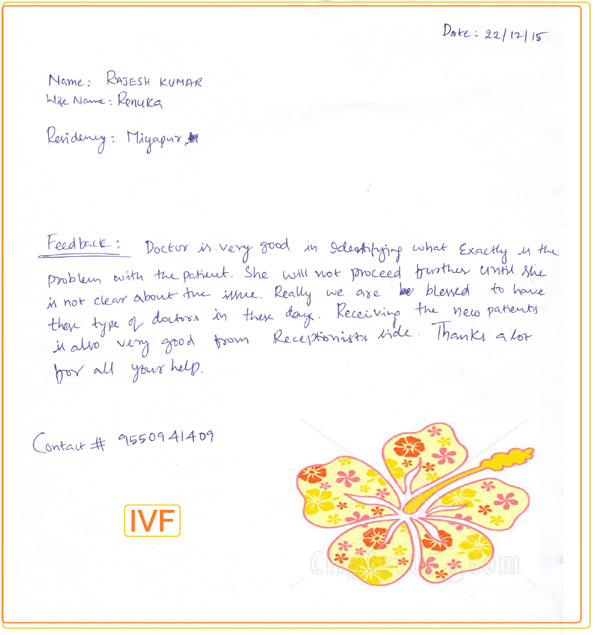 Date: 22/12/15
Name: RAJESH KUMAR
Wife Name: Renuka
Residency: Miyapur
Feedback: Doctor is very good in Identifying what Exactly is the
problem with the patient. She will not proceed further until she
is not clear about the issue. Really we are blessed to have
these type of doctors in these days. Receiving the new patients
is also very good from Receptionists side. Thanks a lot
for all your help.
Contact # 9550941409
IVF